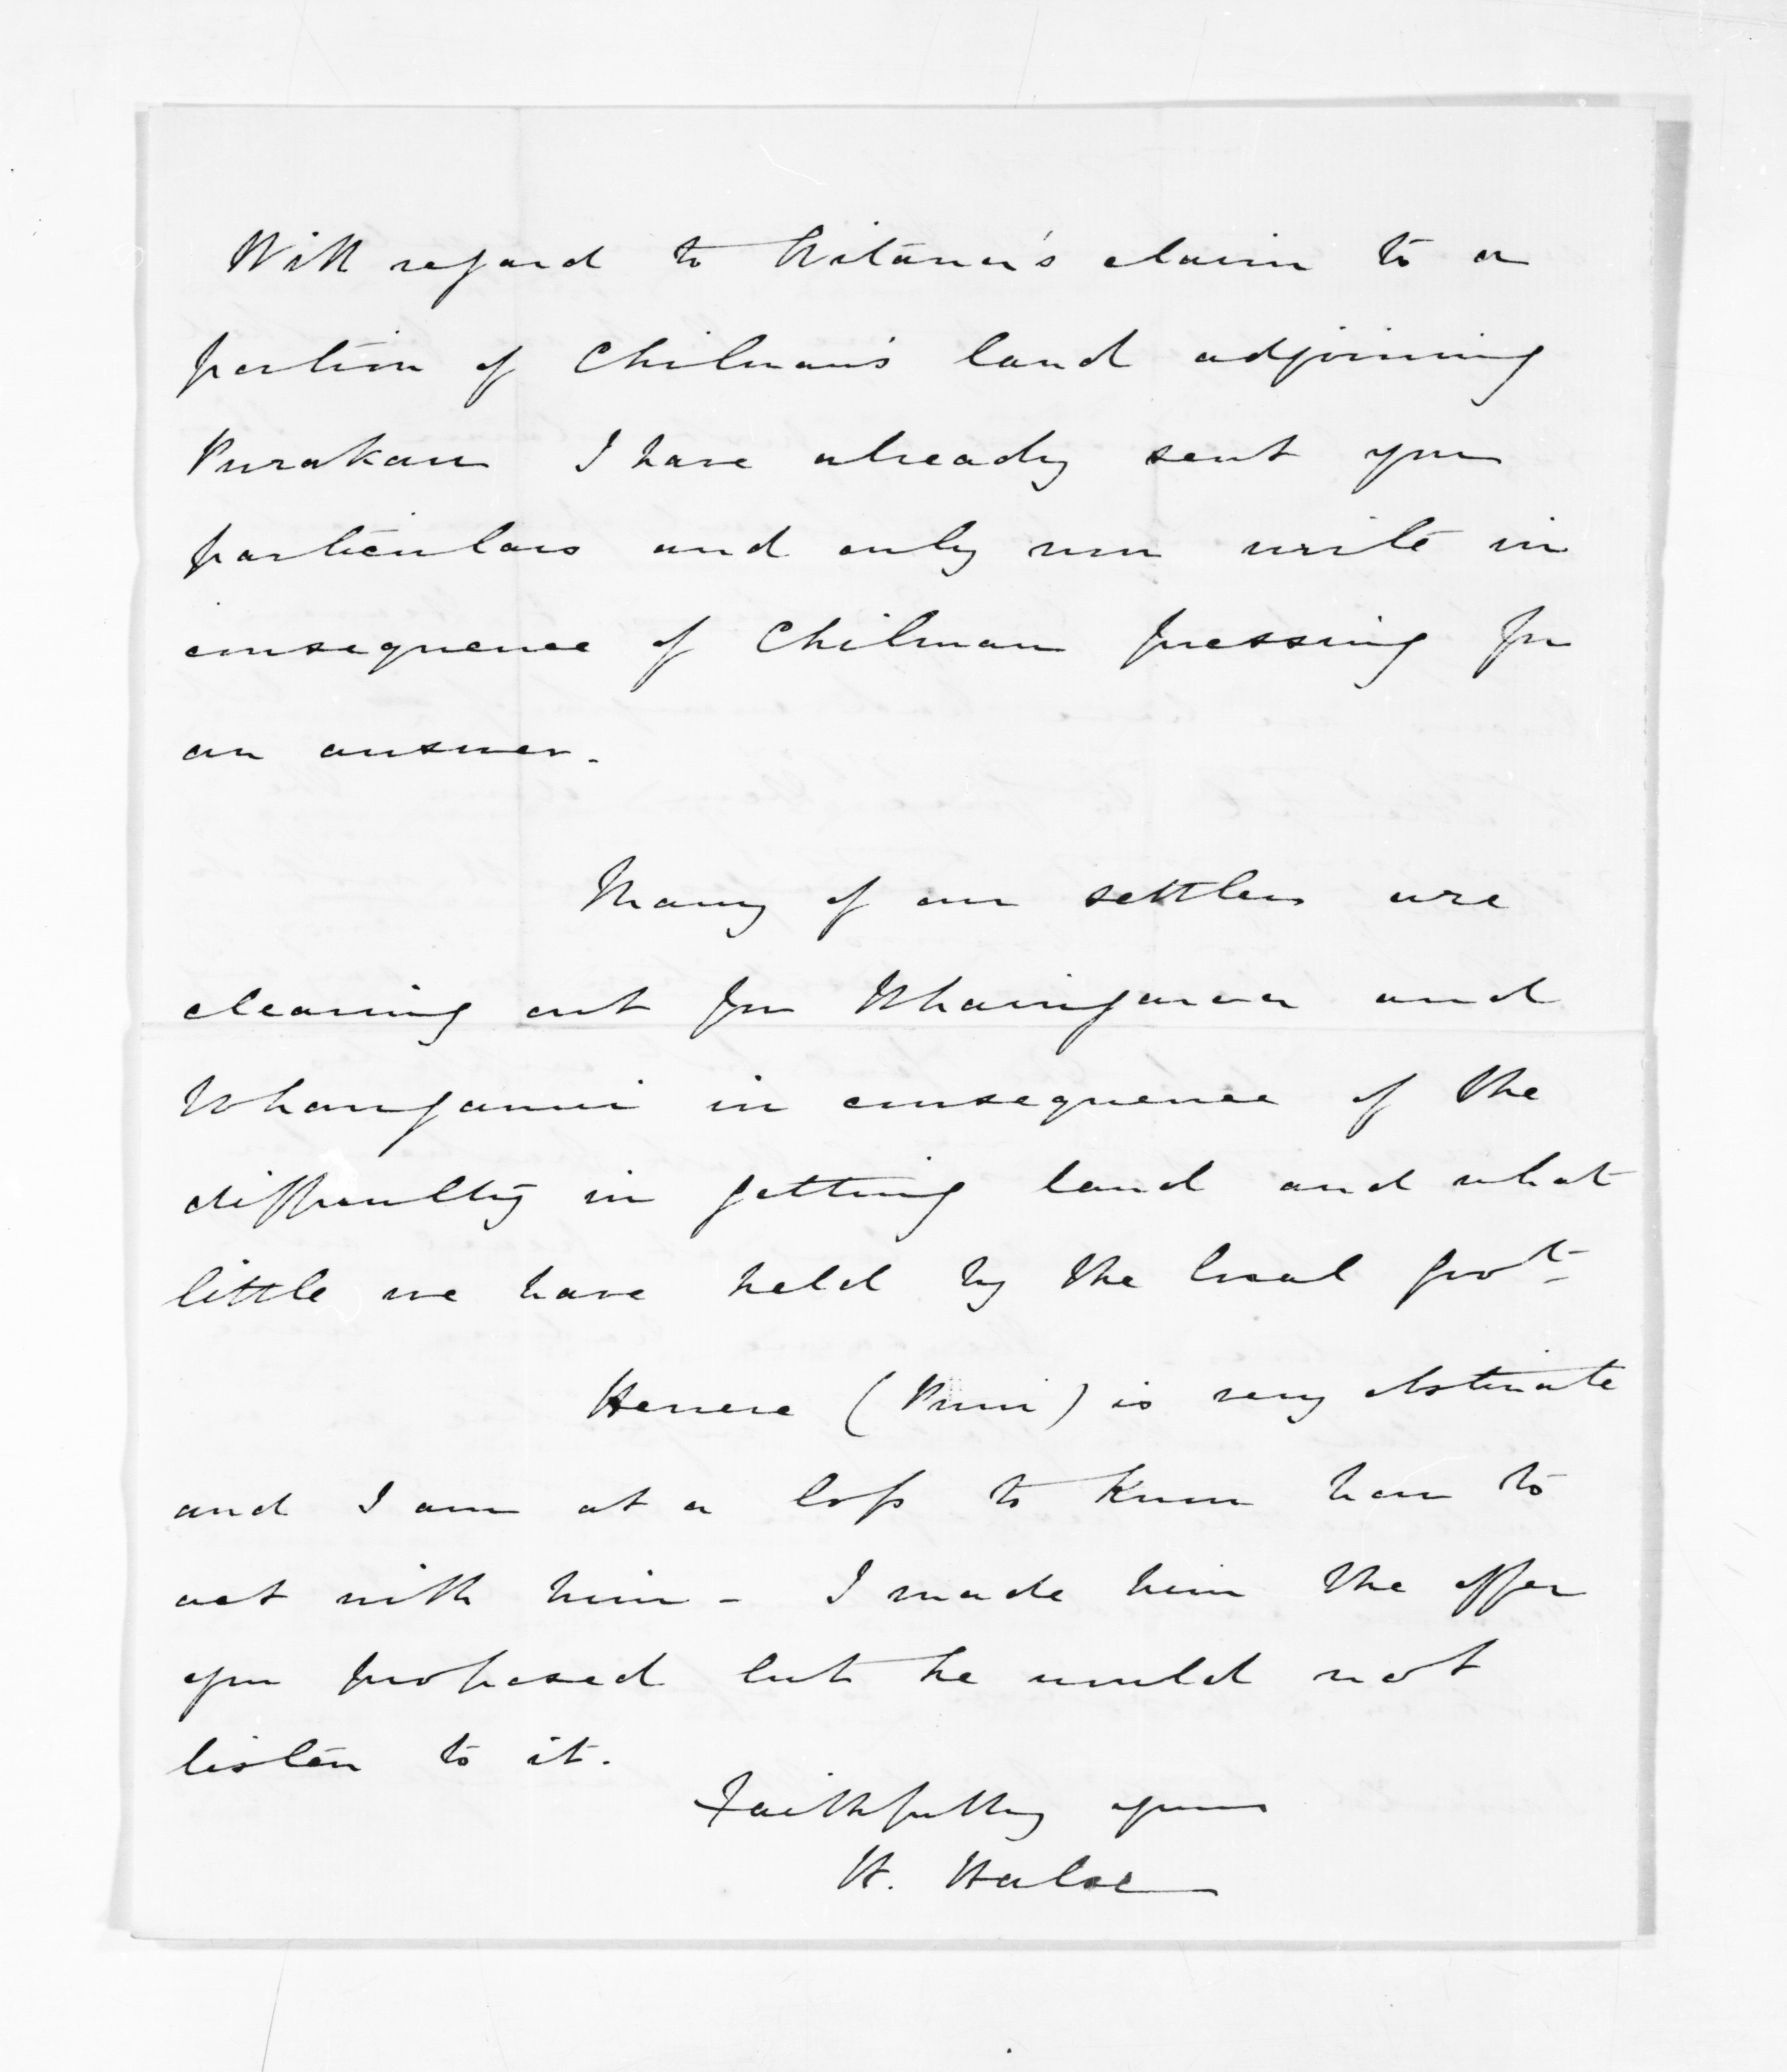 With regard to Witana's claim to a
portion of Chilman's land adjoining
Purakau I have already sent you
particulars and only now write in
consequence of Chilman pressing for
an answer.
Many of our settlers are
clearing out for Whaingaroa and
Whanganui in consequence of the
difficulty in getting land and what
little we have held by the local govt
(Puni) is very obstinate
and I am at a loss to know how to
act with him - I made him the offer
you proposed but he would not
listen to it.
Faithfully yours
H. Halse